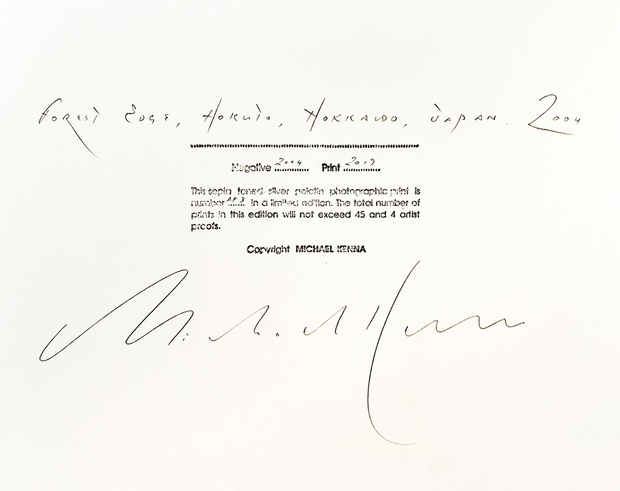 Forest Edge, Hokuto, Hokkaido, Japan. 2004
Negative 2004 Print 2019
This sepia toned silver gelatin photographic print is
number in a limited edition. The total number of
prints in this edition will not exceed 45 and 4 artist
proofs.
Copyright MICHAEL KENNA
Michael Kenna